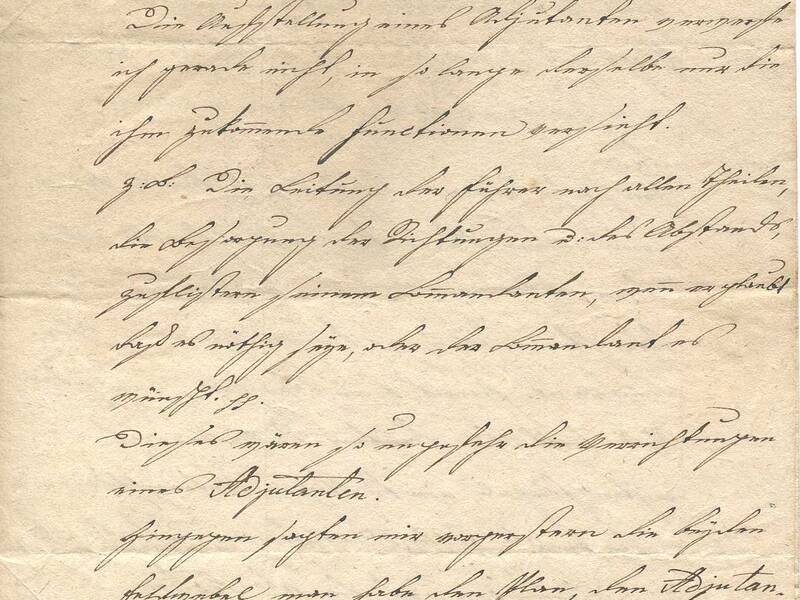 Die Aufstellung eines Adjutanten verwerfe
ich gerade nicht, in so lange derselbe nur die
ihm zukommende Functionen versieht.
z: B: Die Leitung der Führer nach allen Theilen,
die Besorgung der Richtungen u: des Abstands,
zuflistern seinem Commandanten, wenn er glaubt
daß es nöthig seye, oder der Commandant es
wünscht. pp.
Dieses wären so ungefehr die Verrichtungen
eines Adjutanten.
Hingegen sagten mir vorgestern die beyden
Feldwebel man habe den Plan, den Adjutan-